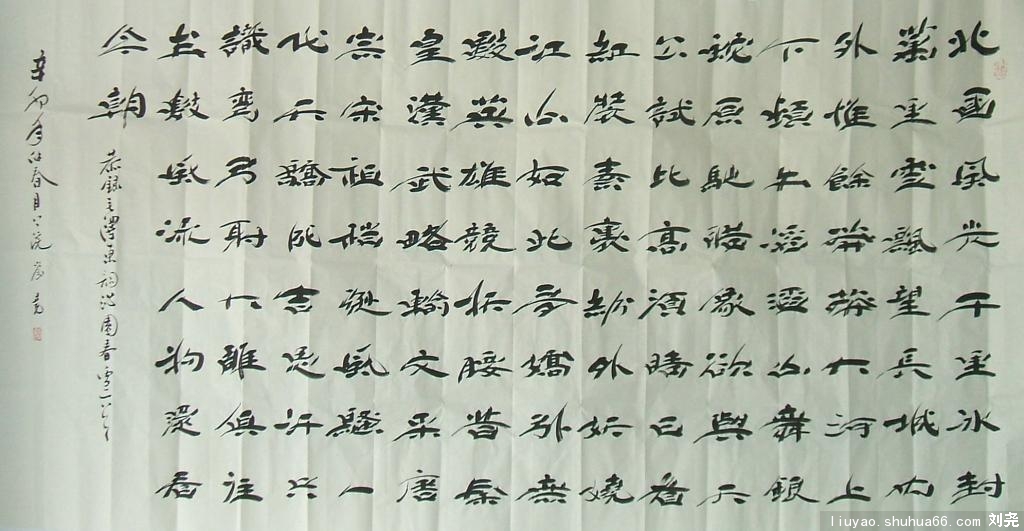 北國風光千里冰封
萬里雪飄望長城內
外惟餘莽莽大河上
下頓失滔滔山舞銀
蛇原馳蠟象欲與天
公試比高須晴日看
紅裝素裹紛外妖嬈
江山如此多嬌引無
數英雄競折腰昔秦
皇漢武略輸文采唐
宗宋祖稍遜風騷一
代天驕成吉思汗只
識彎弓射大雕俱往
矣數風流人物還看
今朝
恭錄毛澤東詞沁園春雪一首
辛卯年仲春月於皖劉堯
liuyao.shuhua66.com 刘尧